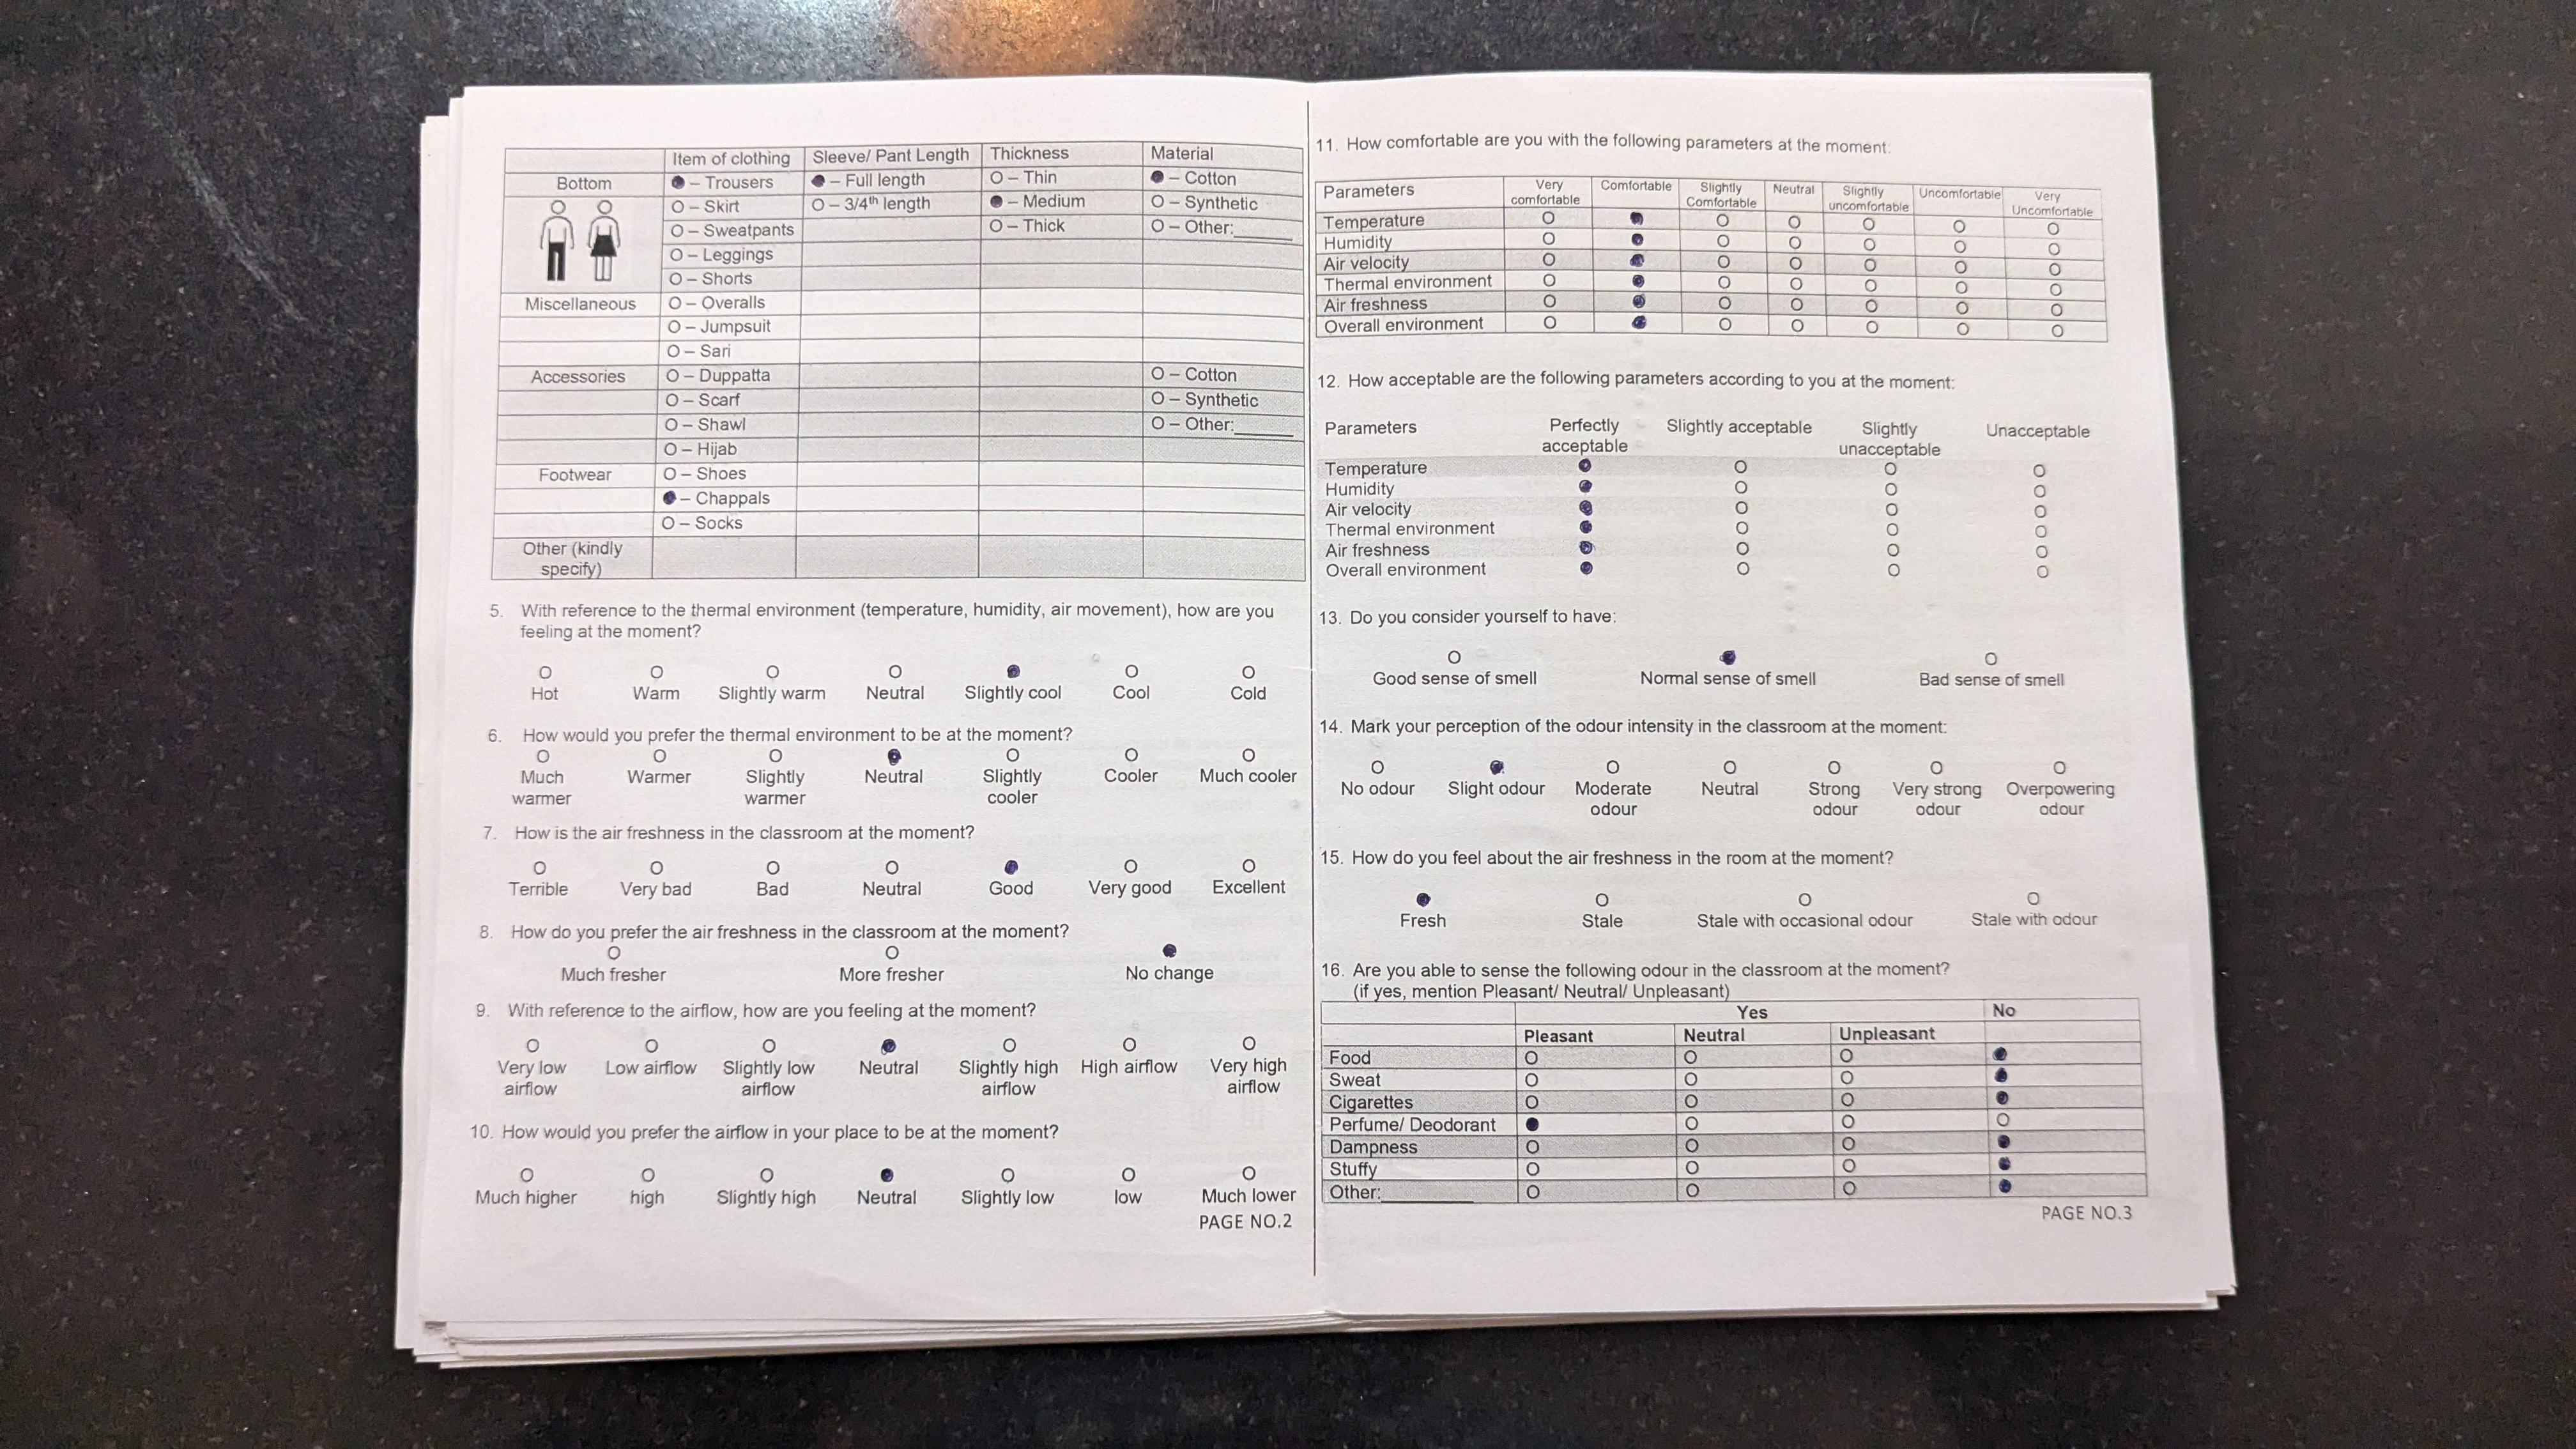 Item of clothing Sleeve/ Pant Length Thickness Material
Bottom ● – Trousers ● – Full length O – Thin ● – Cotton
O – Skirt O – 3/4th length ● – Medium O – Synthetic
O – Sweatpants O – Thick O – Other:______
O – Leggings
O – Shorts
Miscellaneous O – Overalls
O – Jumpsuit
O – Sari
Accessories O – Duppatta O – Cotton
O – Scarf O – Synthetic
O – Shawl O – Other:______
O – Hijab
Footwear O – Shoes
● – Chappals
O – Socks
Other (kindly
specify)
5. With reference to the thermal environment (temperature, humidity, air movement), how are you
feeling at the moment?
O O O O ● O O
Hot Warm Slightly warm Neutral Slightly cool Cool Cold
6. How would you prefer the thermal environment to be at the moment?
O O O ● O O O
Much Warmer Slightly Neutral Slightly Cooler Much cooler
warmer warmer cooler
7. How is the air freshness in the classroom at the moment?
O O O O ● O O
Terrible Very bad Bad Neutral Good Very good Excellent
8. How do you prefer the air freshness in the classroom at the moment?
O O ●
Much fresher More fresher No change
9. With reference to the airflow, how are you feeling at the moment?
O O O ● O O O
Very low Low airflow Slightly low Neutral Slightly high High airflow Very high
airflow airflow airflow airflow
10. How would you prefer the airflow in your place to be at the moment?
O O O ● O O O
Much higher high Slightly high Neutral Slightly low low Much lower
PAGE NO.2
11. How comfortable are you with the following parameters at the moment:
Parameters Very Comfortable Slightly Neutral Slightly Uncomfortable Very
comfortable Comfortable uncomfortable Uncomfortable
Temperature O ● O O O O O
Humidity O ● O O O O O
Air velocity O ● O O O O O
Thermal environment O ● O O O O O
Air freshness O ● O O O O O
Overall environment O ● O O O O O
12. How acceptable are the following parameters according to you at the moment:
Parameters Perfectly Slightly acceptable Slightly Unacceptable
acceptable unacceptable
Temperature ● O O O
Humidity ● O O O
Air velocity ● O O O
Thermal environment ● O O O
Air freshness ● O O O
Overall environment ● O O O
13. Do you consider yourself to have:
O ● O
Good sense of smell Normal sense of smell Bad sense of smell
14. Mark your perception of the odour intensity in the classroom at the moment:
O ● O O O O O
No odour Slight odour Moderate Neutral Strong Very strong Overpowering
odour odour odour odour
15. How do you feel about the air freshness in the room at the moment?
● O O O
Fresh Stale Stale with occasional odour Stale with odour
16. Are you able to sense the following odour in the classroom at the moment?
(if yes, mention Pleasant/ Neutral/ Unpleasant)
Yes No
Pleasant Neutral Unpleasant
Food O O O ●
Sweat O O O ●
Cigarettes O O O ●
Perfume/ Deodorant ● O O O
Dampness O O O ●
Stuffy O O O ●
Other:__________ O O O ●
PAGE NO.3